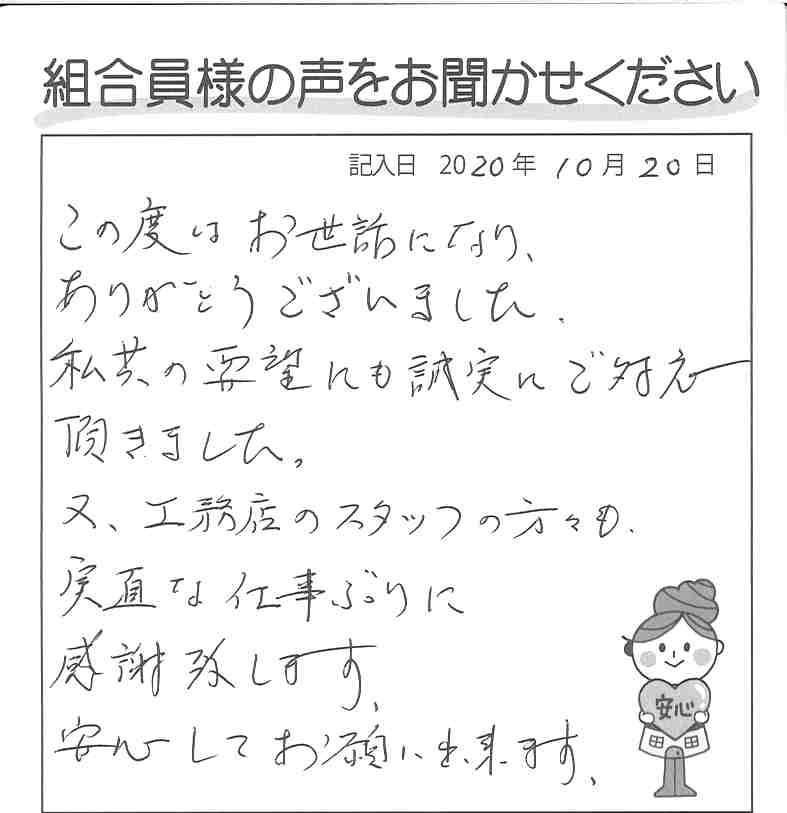 組合員様の声をお聞かせください
記入日 2020年 10月 20日
この度はお世話になり、
ありがとうございました.
私共の要望にも誠実にご対応
頂きました。
又、工務店のスタッフの方々も.
実直な仕事ぶりに
感謝致します、
安心してお願い出来ます、
安心